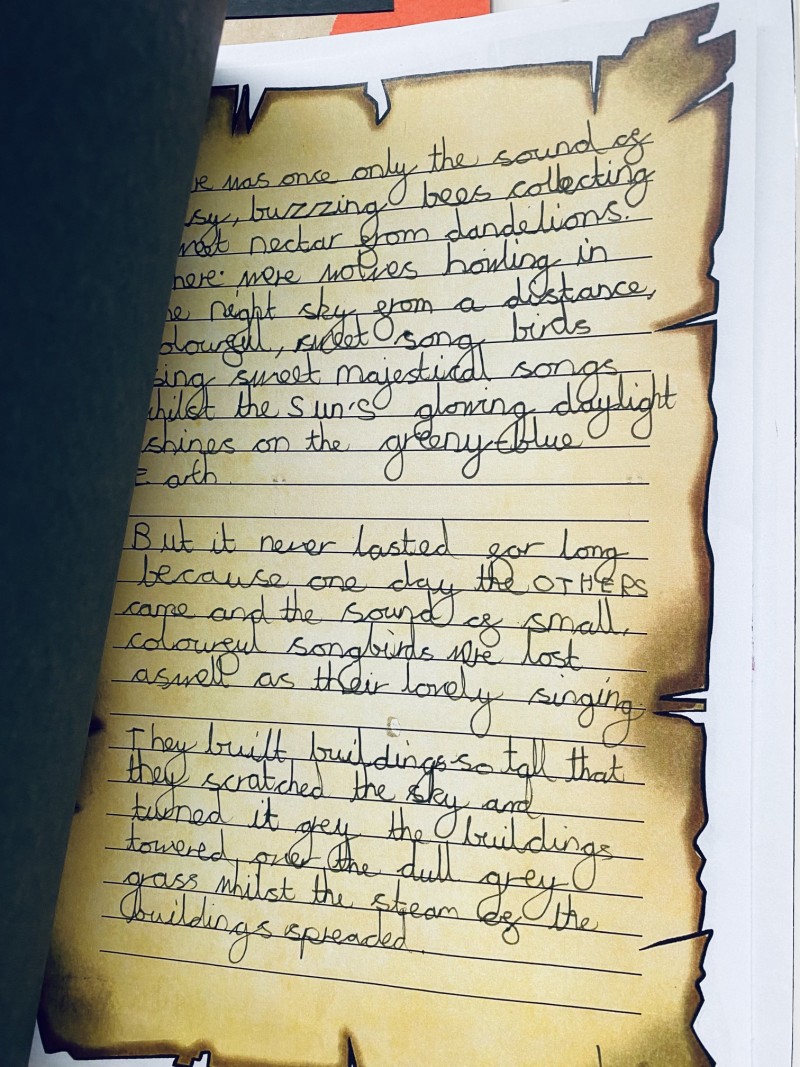 was once only the sound of
buzzing bees collecting
nectar from dandelions.
were wolves howling in
night sky from a distance,
sweet song birds
sing sweet majestical songs
whilst the sun's glowing daylight
shines on the greeny-blue
Earth.
But it never lasted for long
because one day the OTHERS
came and the sound of small,
colourful songbirds were lost
aswell as their lovely singing
They built buildings so tall that
they scratched the sky and
turned it grey the buildings
towered over the dull grey
grass whilst the steam of the
buildings spreaded.